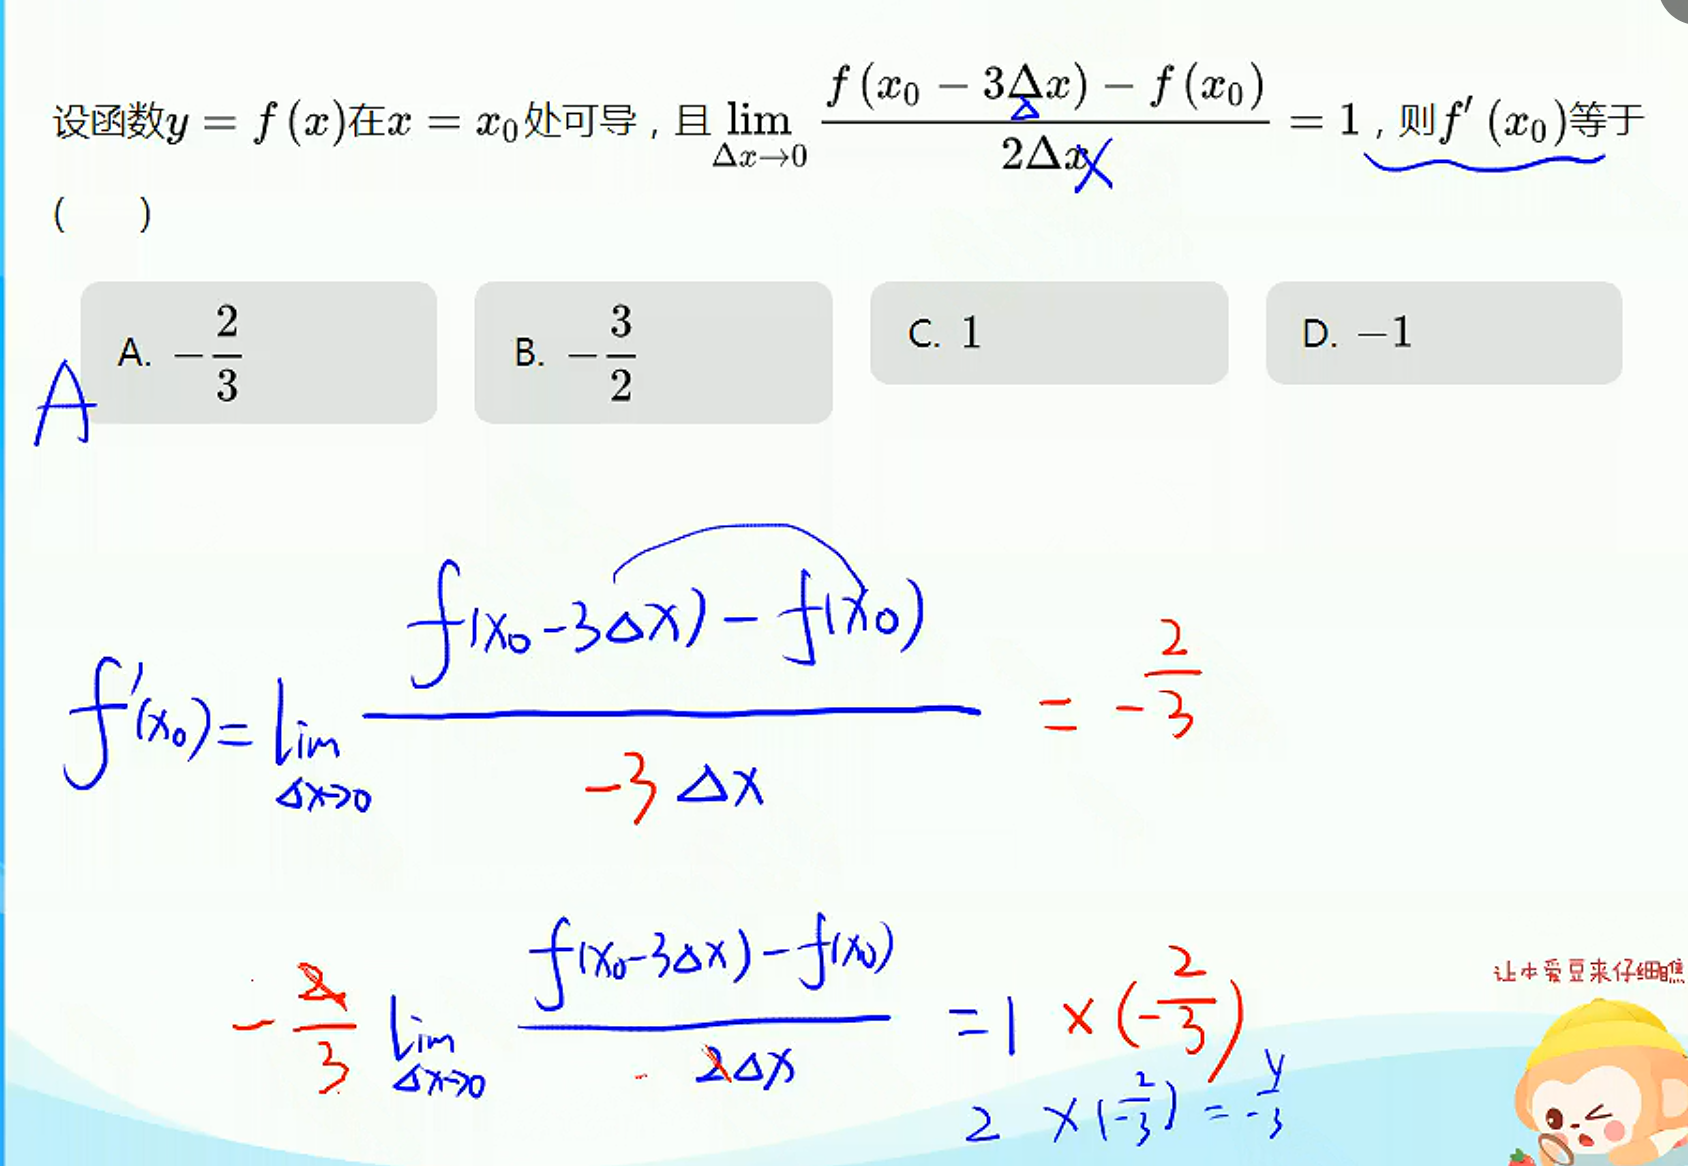 设函数y = f(x)在x = x₀处可导，且 lim_{Δx→0} \frac{f(x₀ − 3Δx) − f(x₀)}{2Δx} = 1，则f′(x₀)等于
(  )
A. −\frac{2}{3} B. −\frac{3}{2} C. 1 D. −1
A
f′(x₀) = lim_{Δx→0} \frac{f(x₀−3Δx) − f(x₀)}{−3Δx} = \frac{2}{−3}
−\frac{2}{3} lim_{Δx→0} \frac{f(x₀−3Δx) − f(x₀)}{2Δx} = 1 × (−\frac{2}{3})
让本爱豆来仔细瞧
2 × (\frac{2}{−3}) = \frac{y}{−3}